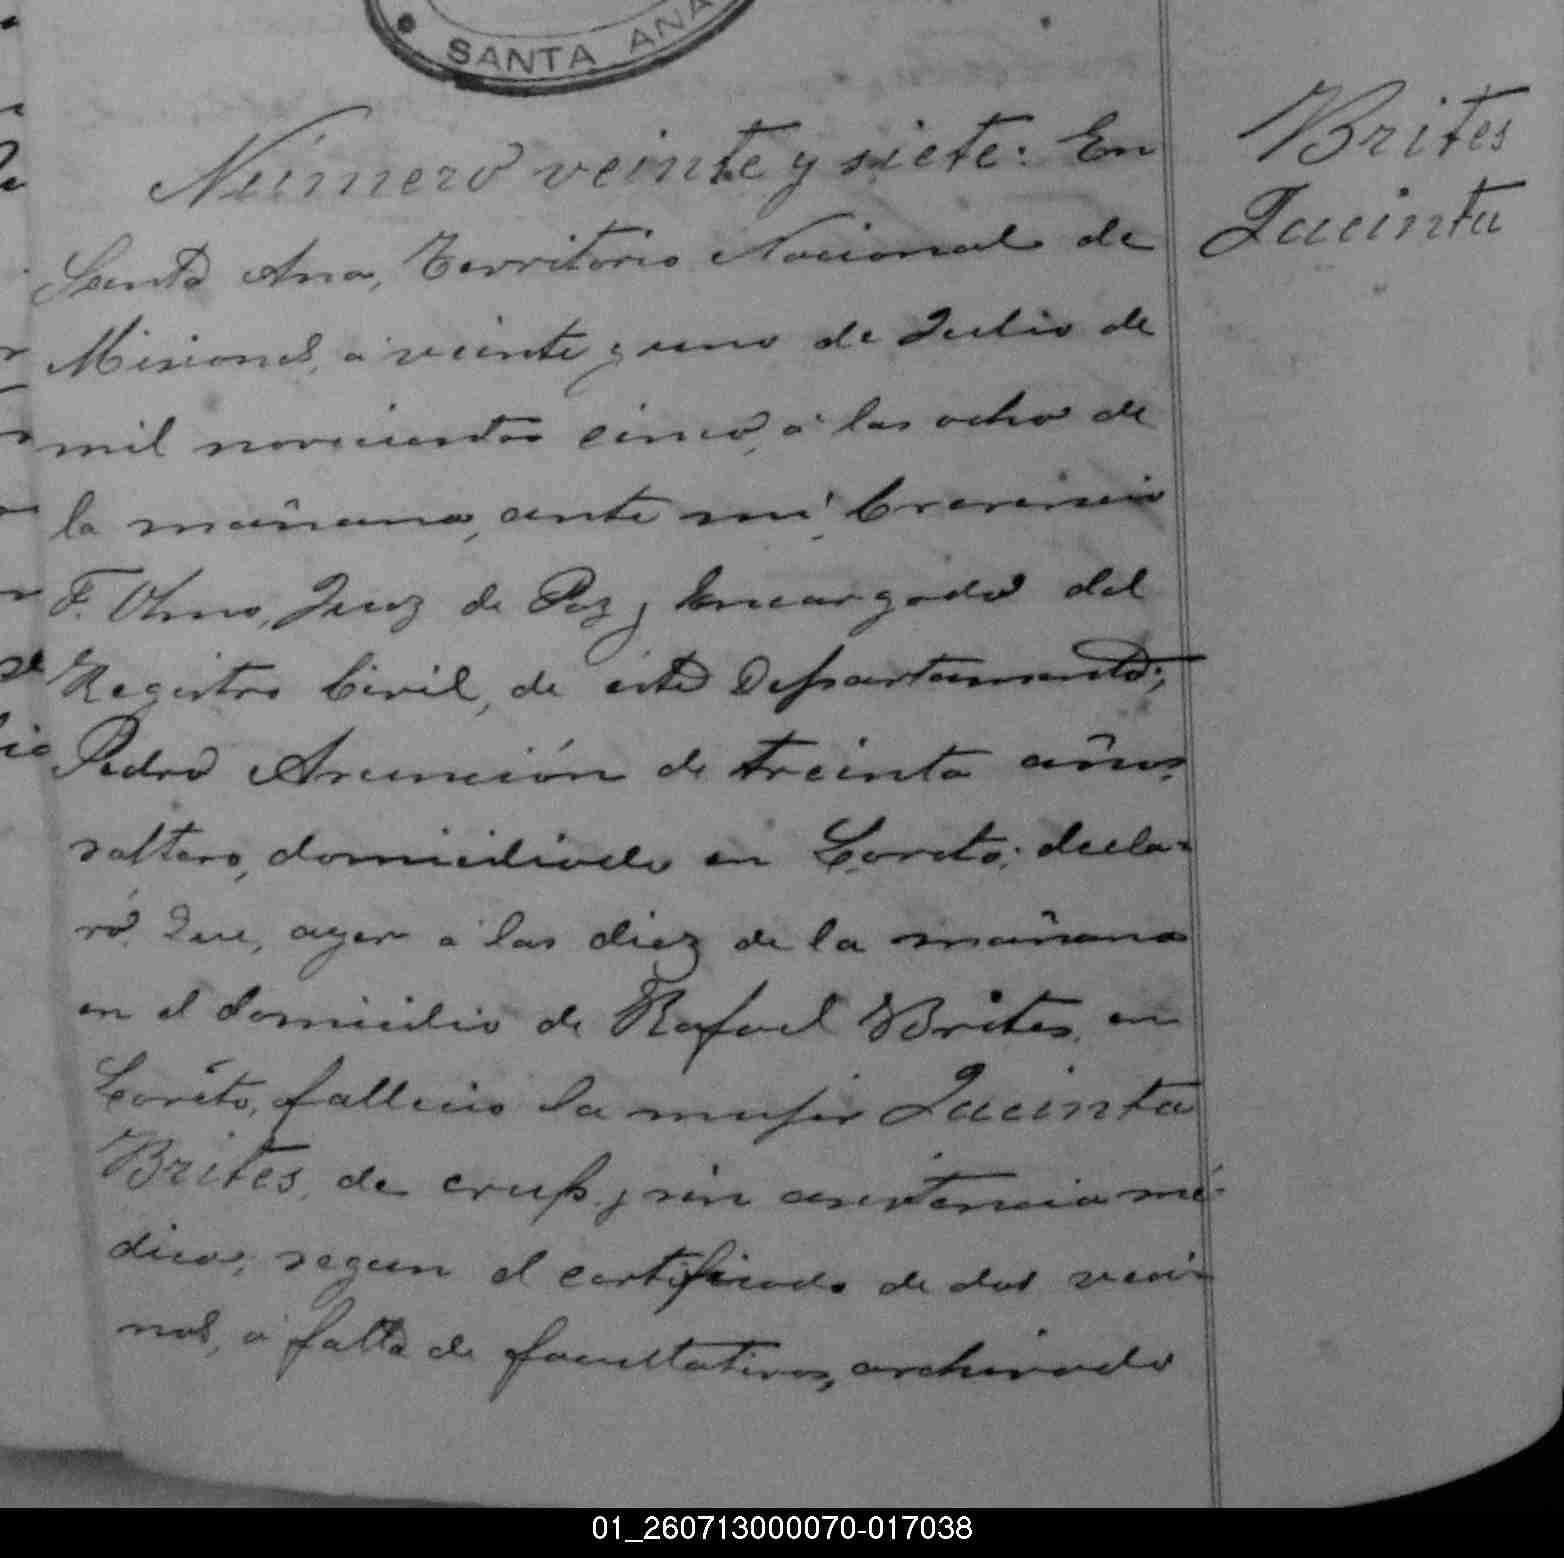 SANTA ANA
Brites
Jacinta
Número veinte y siete: En
Santa Ana, Territorio Nacional de
Misiones, á veinte y uno de Julio de
mil novecientos cinco, á las ocho de
la mañana, ante mí,
F. Olmo, Juez de Paz y Encargado del
Registro Civil, de este Departamento;
Pedro Asunción de treinta años,
soltero, domiciliado en Loreto; decla-
ró: Que, ayer á las diez de la mañana
en el domicilio de Rafael Brites, en
Loreto, falleció la mujer Jacinta
Brites, de crup, y sin asistencia mé-
dica, segun el certificado de dos veci-
nos, á falta de facultativos, archivado
01_260713000070-017038